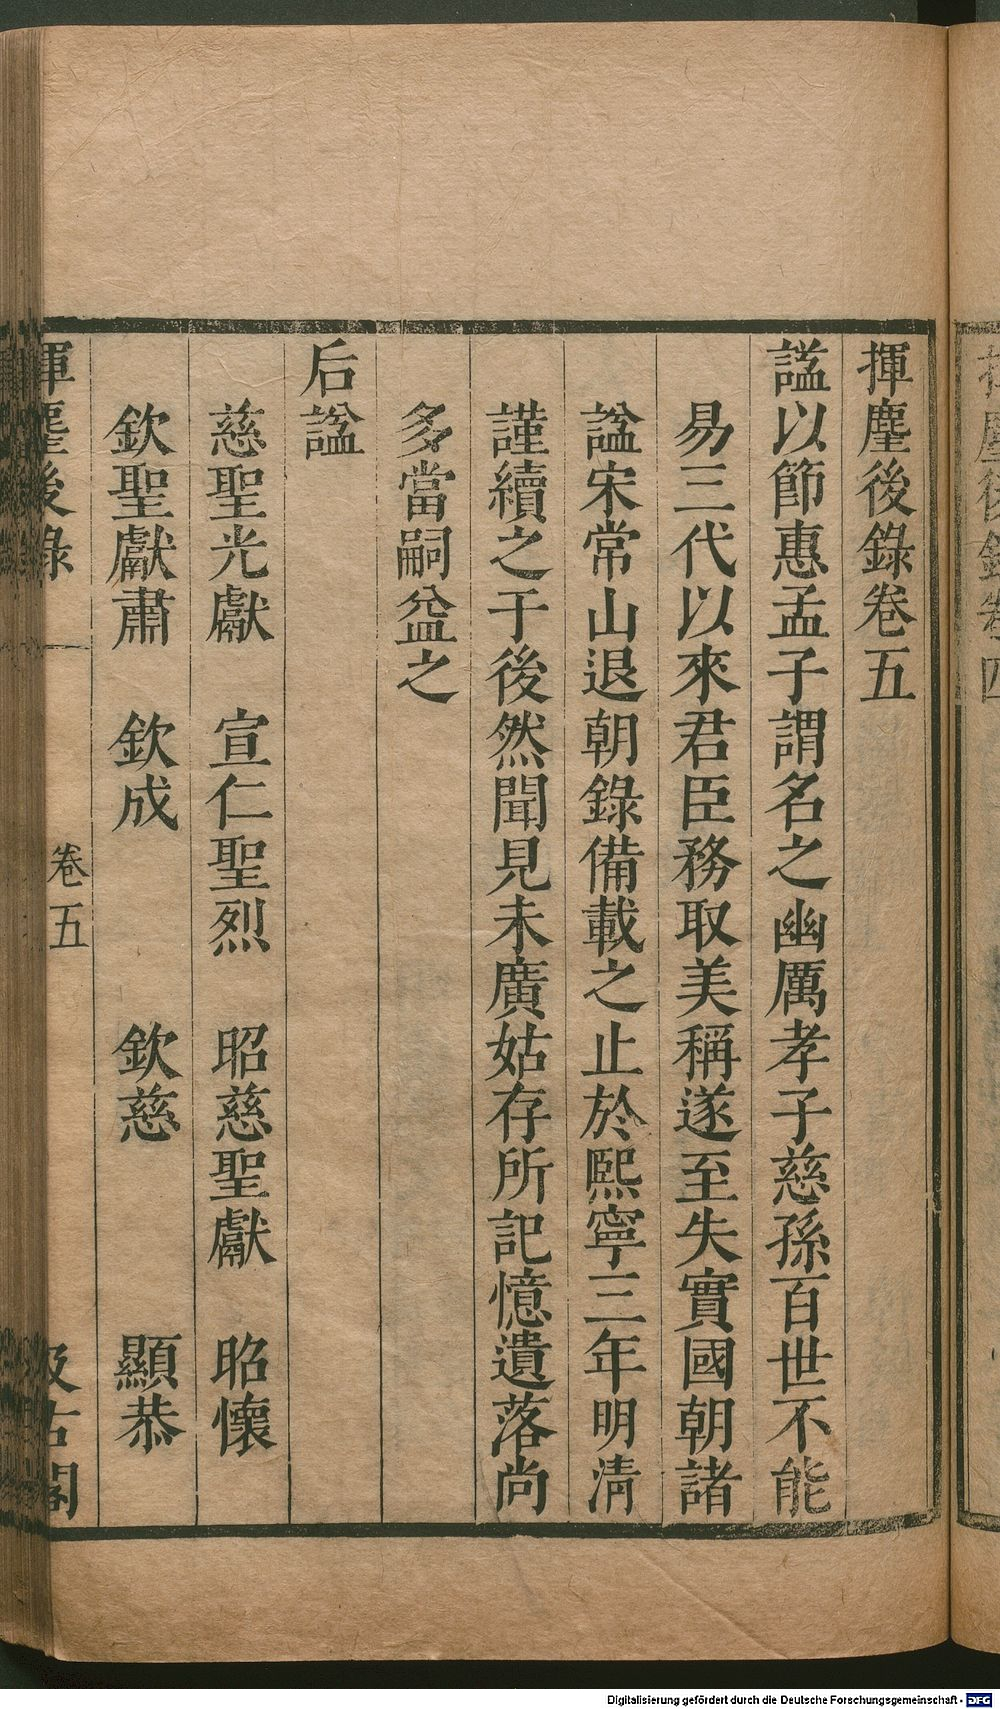 揮麈後錄卷五
諡以節惠孟子謂名之幽厲孝子慈孫百世不能
易三代以來君臣務取美稱遂至失實國朝諸
諡宋常山退朝錄備載之止於熙寧三年明清
謹續之于後然聞見未廣姑存所記憶遺落尚
多當嗣益之
后諡
慈聖光獻　宣仁聖烈　昭慈聖獻　昭懷
欽聖獻肅　欽成　欽慈　顯恭
揮麈後錄　卷五　汲古閣
Digitalisierung gefördert durch die Deutsche Forschungsgemeinschaft - DFG